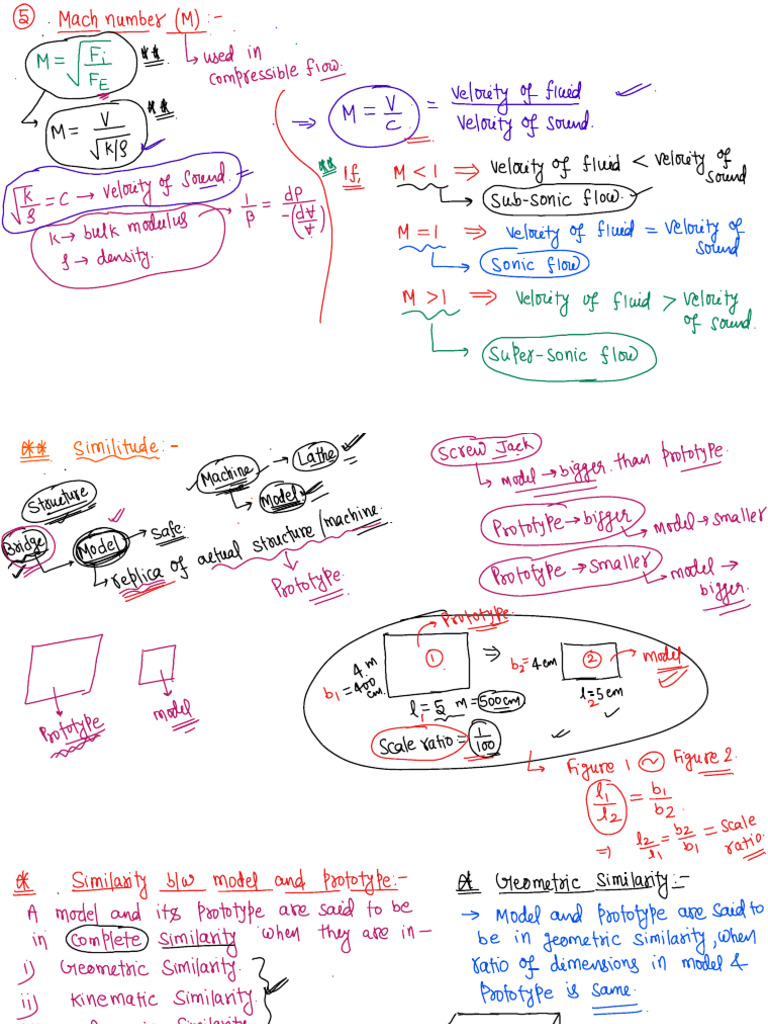 ⑤ Mach number (M) :-
↳ used in
compressible flow
M = √(Fi/FE) **
M = V/√(k/ρ) **
√(k/ρ) = C → velocity of sound
k → bulk modulus → 1/β = dP/-(d∀/∀)
ρ → density.
⇒ M = V/C = velocity of fluid/velocity of sound.
** If, M < 1 ⇒ velocity of fluid < velocity of
sound
↳ Sub-sonic flow
M = 1 ⇒ velocity of fluid = velocity of
sound
↳ Sonic flow
M > 1 ⇒ velocity of fluid > velocity
of sound.
↳ Super-sonic flow
** Similitude :-
Structure
Bridge → Model → safe
↳ replica of actual structure/machine.
↓
Prototype.
Machine → Lathe
↳ Model
Screw Jack
↳ model → bigger than prototype.
Prototype → bigger
↳ model → smaller
Prototype → smaller
↳ model →
bigger.
Prototype
model
→ Prototype
①
4 m
b1 = 400
cm.
l1 = 5 m = 500cm
⇒
b2 = 4cm
② → model
l2 = 5cm
Scale ratio = 1/100
↳ Figure 1 ~ Figure 2.
l1/l2 = b1/b2
⇒ l2/l1 = b2/b1 = scale
ratio.
* Similarity b/w model and prototype:-
A model and its prototype are said to be
in complete similarity when they are in -
i) Geometric Similarity.
ii) Kinematic Similarity.
* Geometric Similarity:-
→ Model and prototype are said to
be in geometric similarity, when
ratio of dimensions in model &
prototype is same.